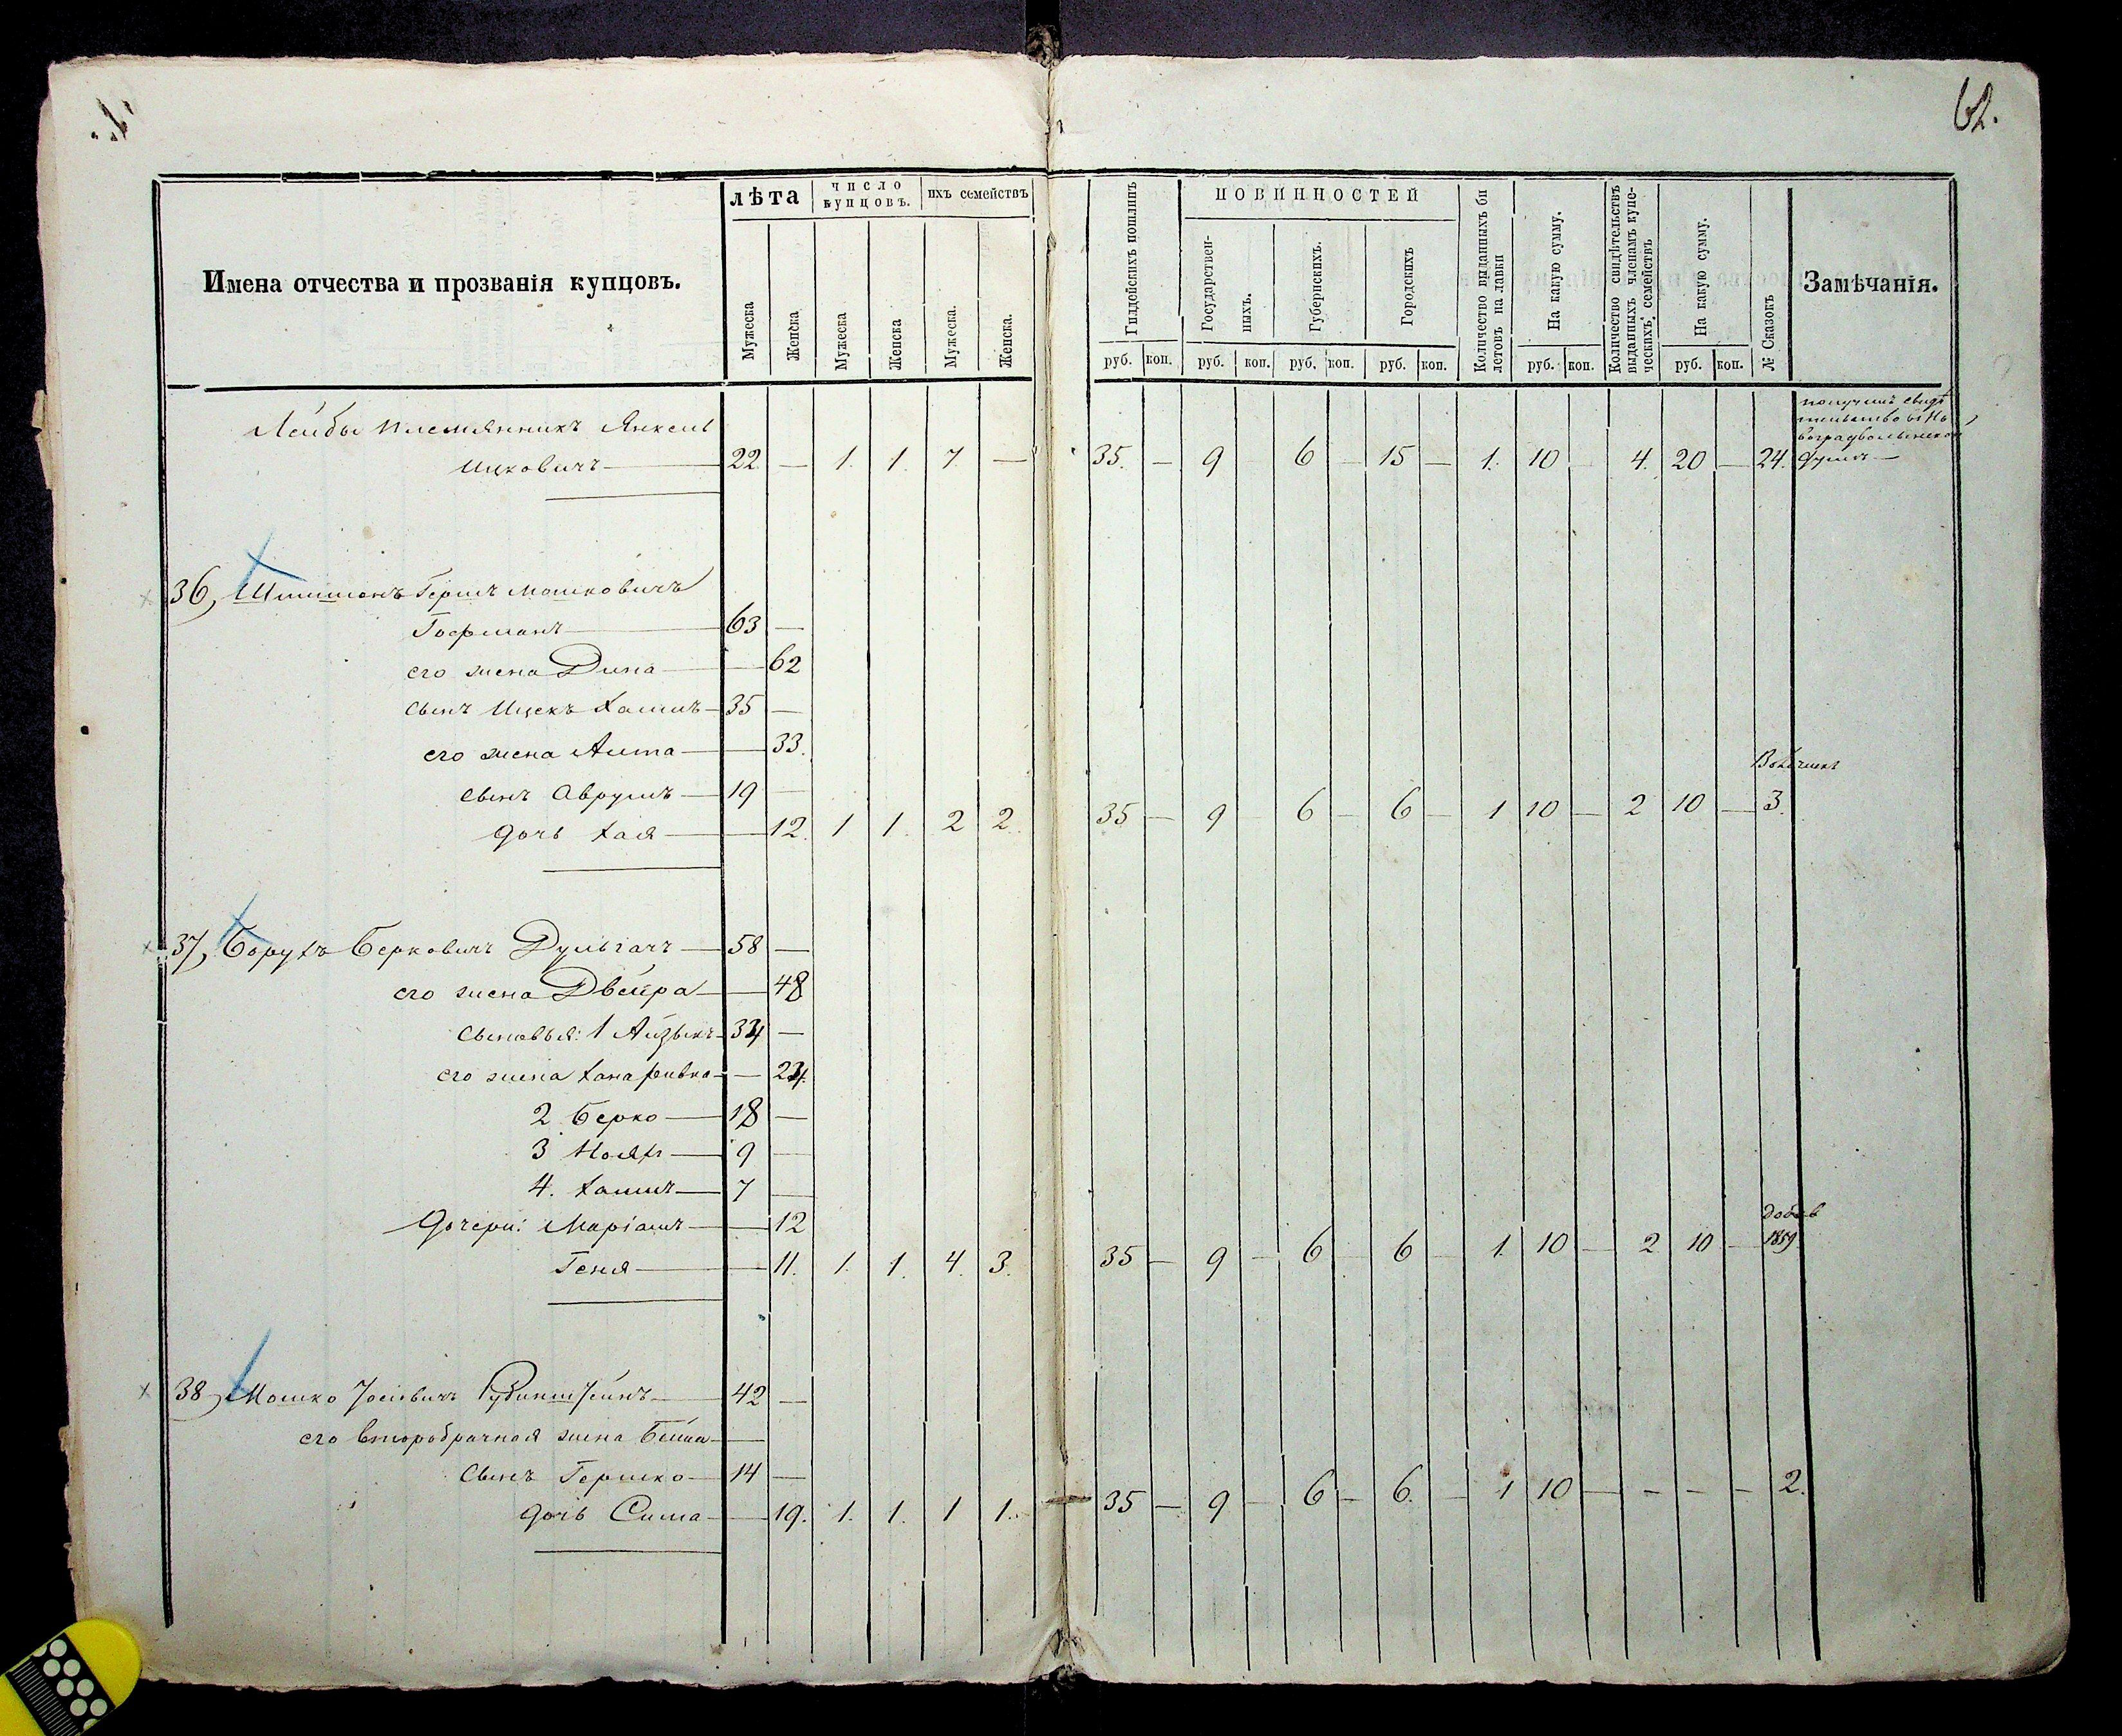 62.
Имена отчества и прозванія купцовъ.
лѣта
число купцовъ.
ихъ семействъ
Мужеска
Женска
Мужеска
Женска
Мужеска.
Женска.
Гилдейскихъ пошлинъ
ПОВИННОСТЕЙ
Государствен-
ныхъ.
Губернскихъ.
Городскихъ
Количество выданныхъ би
летовъ на лавки
На какую сумму.
Количество свидѣтельствъ
выданныхъ членамъ купе-
ческихъ семействъ
На какую сумму.
№ Сказокъ
Замѣчанія.
руб. коп. руб. коп. руб. коп. руб. коп. руб. коп. руб. коп.
Лейбы племянникъ Янкель
Ицковичъ — 22 — 1. 1. 7 — 35. — 9 6 — 15 — 1. 10 4. 20 — 24.
получилъ свидѣ
тельство въ Но
воградволынской
думѣ —
36, Шимшонъ Гершъ Мошковичъ
Гофманъ — 63 —
его жена Дина — 62
сынъ Ицекъ Хаимъ — 35 —
его жена — 33.
сынъ Аврумъ — 19 —
дочь Хая — 12. 1 1. 2 2. 35 — 9 6 — 6 — 1 10 — 2 10 — 3.
37, Борухъ Берковичъ — 58 —
его жена Двейра — 48
сыновья: 1 Айзыкъ — 34 —
его жена Хана Ривка — 24.
2 Берко — 18 —
3 — 9 —
4. Хаимъ — 7 —
дочери: Маріамъ — 12
Геня — 11. 1. 1. 4. 3. 35 — 9 — 6 — 6 — 1. 10 — 2 10 —
добав
1859.
38, Мошко Іосіовичъ Рубинштейнъ — 42 —
его второбрачная жена Бейла —
сынъ Гершко — 14 —
дочь Сима — 19. 1. 1. 1 1. — 35 — 9 — 6 — 6. — 1 10 — - - - 2.